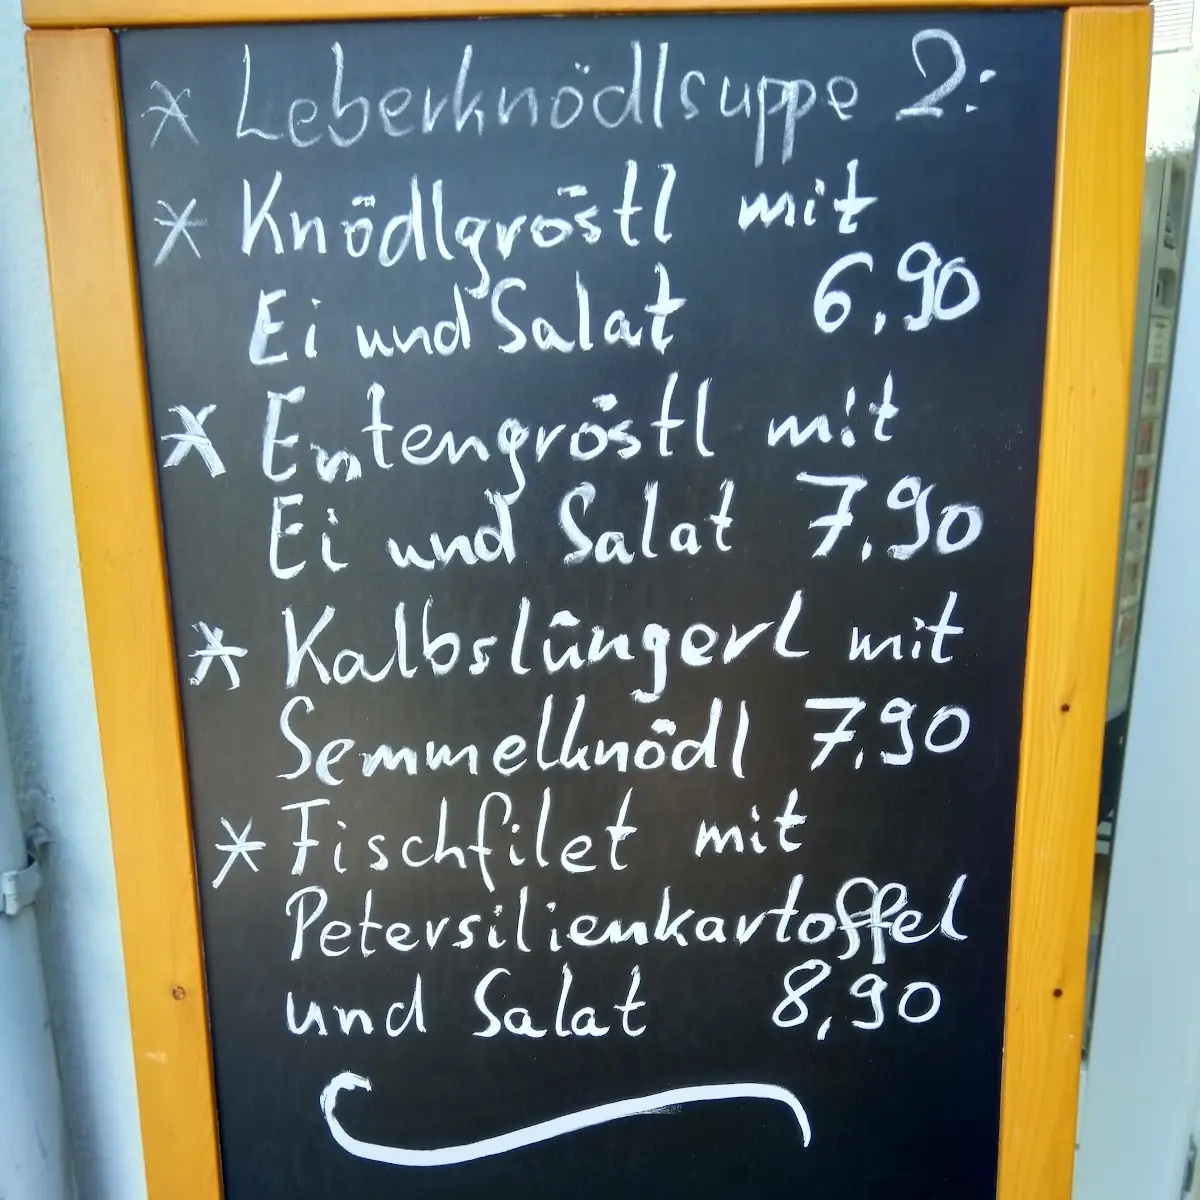 * Leberknödlsuppe 2:
* Knödlgröstl mit
Ei und Salat 6,90
* Entengröstl mit
Ei und Salat 7,90
* Kalbslüngerl mit
Semmelknödl 7,90
* Fischfilet mit
Petersilienkartoffel
und Salat 8,90